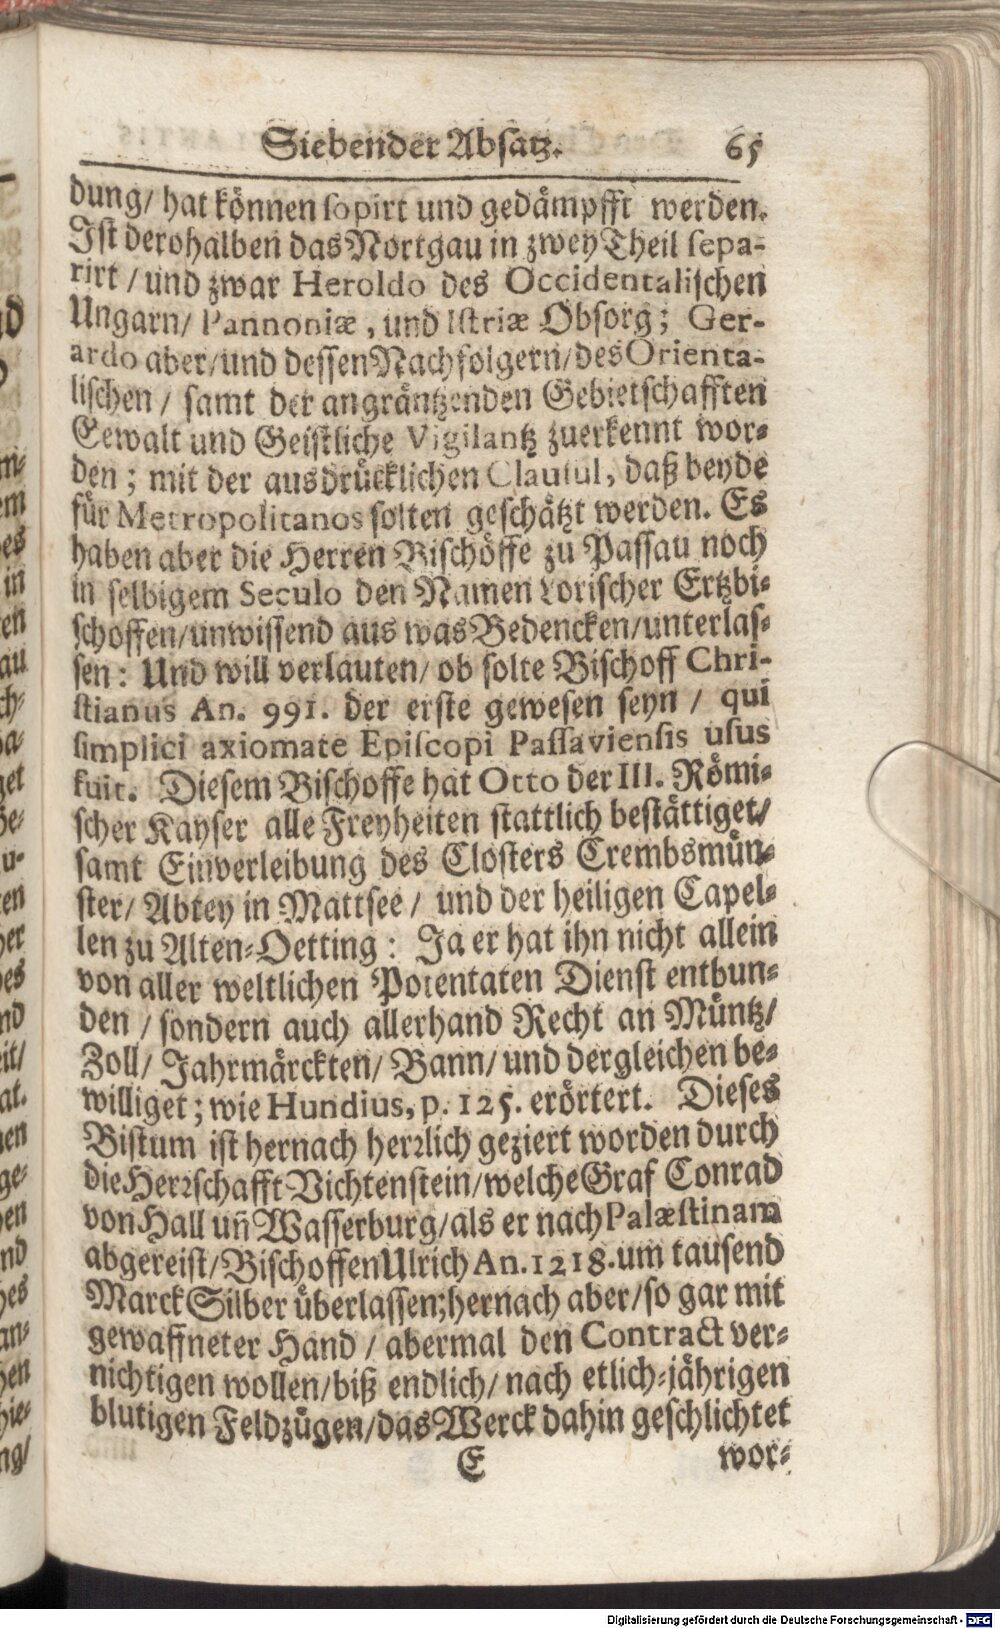 Siebender Absatz. 65
dung/ hat können sopirt und gedämpfft werden.
Ist derohalben das Nortgau in zwey Theil sepa-
rirt / und zwar Heroldo des Occidentalischen
Ungarn/ Pannoniæ, und Istriæ Obsorg; Ger-
ardo aber/ und dessen Nachfolgern/ des Orienta-
lischen / samt der angräntzenden Gebietschafften
Gewalt und Geistliche Vigilantz zuerkennt wor-
den; mit der ausdrücklichen Clausul, daß beyde
für Metropolitanos solten geschätzt werden. Es
haben aber die Herren Bischöffe zu Passau noch
in selbigem Seculo den Namen Lorischer Ertzbi-
schoffen/ unwissend aus was Bedencken/ unterlas-
sen: Und will verlauten/ ob solte Bischoff Chri-
stianus An. 991. der erste gewesen seyn / qui
simplici axiomate Episcopi Passaviensis usus
fuit. Diesem Bischoffe hat Otto der III. Römi-
scher Kayser alle Freyheiten stattlich bestättiget/
samt Einverleibung des Closters Crembsmün-
ster/ Abtey in Mattsee / und der heiligen Capel-
len zu Alten-Oetting: Ja er hat ihn nicht allein
von aller weltlichen Potentaten Dienst entbun-
den / sondern auch allerhand Recht an Müntz/
Zoll/ Jahrmärckten/ Bann/ und dergleichen be-
williget; wie Hundius, p. 125. erörtert. Dieses
Bistum ist hernach herrlich geziert worden durch
die Herrschafft Vichtenstein/ welche Graf Conrad
von Hall uñ Wasserburg/ als er nach Palæstinam
abgereist/ Bischoffen Ulrich An. 1218. um tausend
Marck Silber überlassen; hernach aber/ so gar mit
gewaffneter Hand / abermal den Contract ver-
nichtigen wollen/ biß endlich/ nach etlich-jährigen
blutigen Feldzügen/ das Werck dahin geschlichtet
E wor-
Digitalisierung gefördert durch die Deutsche Forschungsgemeinschaft - DFG